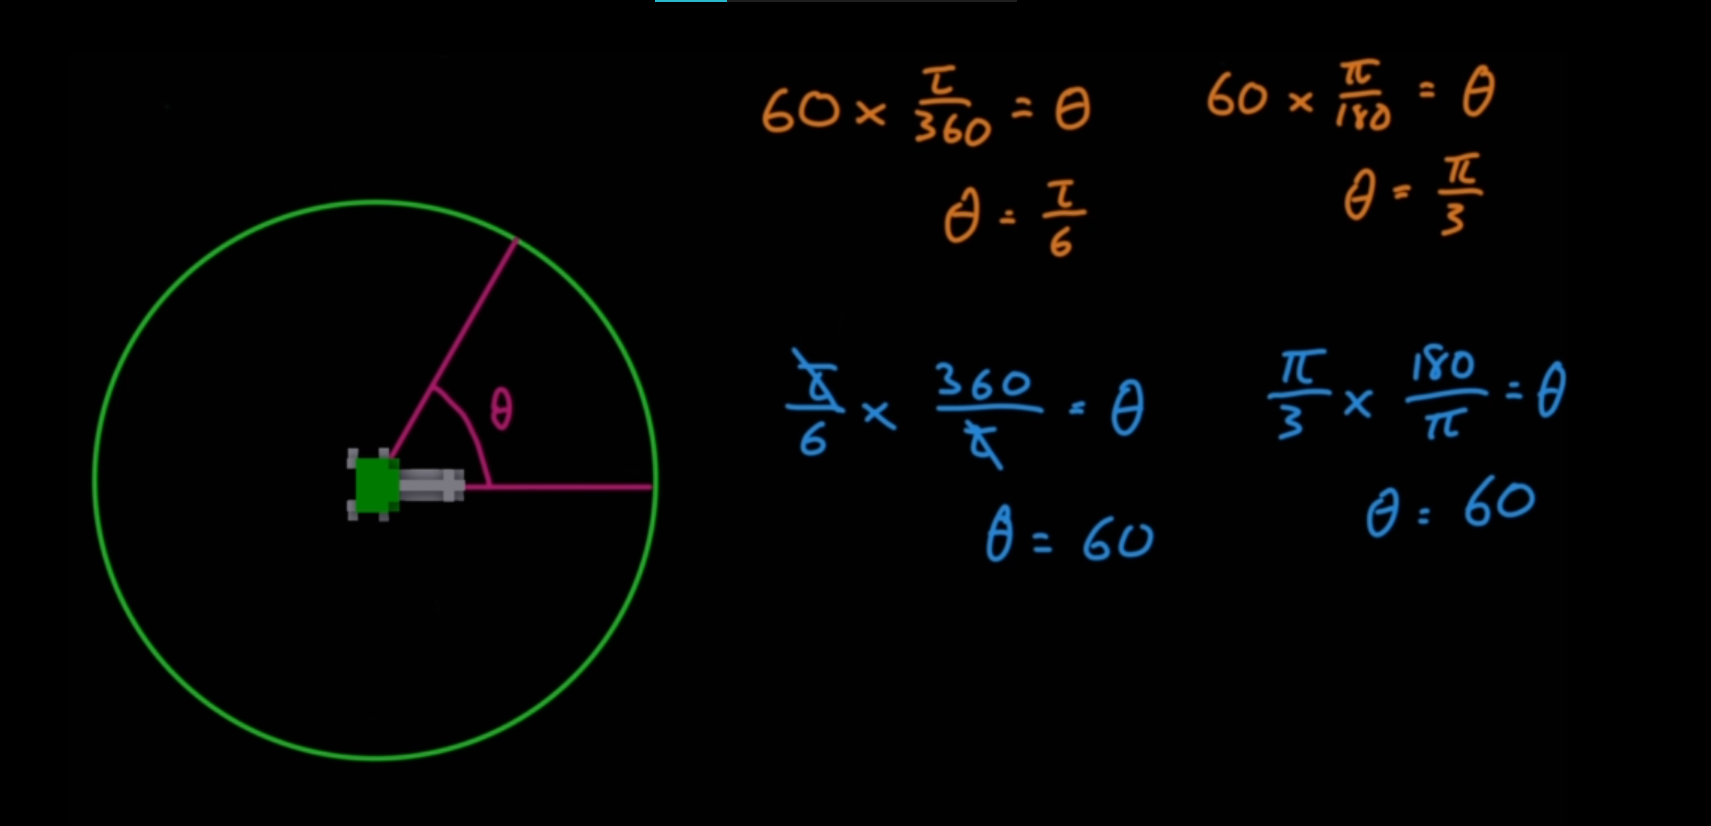 60 × τ/360 = θ
θ = τ/6
60 × π/180 = θ
θ = π/3
θ
τ/6 × 360/τ = θ
θ = 60
π/3 × 180/π = θ
θ = 60